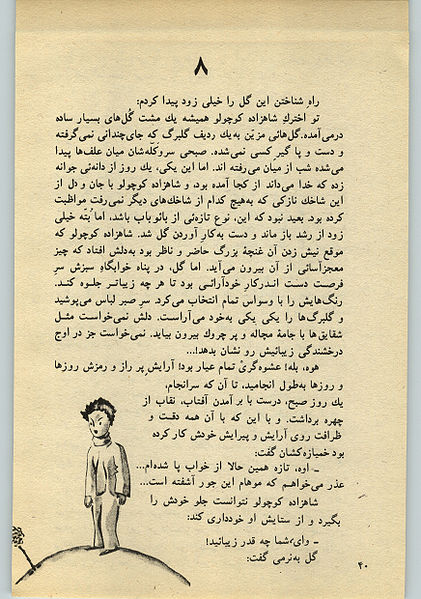 ۸
راهِ شناختن این گل را خیلی زود پیدا کردم:
تو اخترکِ شاهزاده کوچولو همیشه یك مشت گُل‌های بسیار ساده
درمی‌آمده. گل‌هائی مزیّن به‌یك ردیف گلبرگ که جای‌چندانی نمی‌گرفته
و دست و پا گیرِ کسی نمی‌شده. صبحی سروکله‌شان میان علف‌ها پیدا
می‌شده شب از میان می‌رفته اند. اما این یکی، یك روز از دانه‌ئی جوانه
زده که خدا می‌داند از کجا آمده بود، و شاهزاده کوچولو با جان و دل از
این شاخك نازکی که به‌هیچ کدام از شاخك‌های دیگر نمی‌رفت مواظبت
کرده بود. بعید نبود که این، نوع تازه‌ئی از بائوباب باشد، اما بُتّه خیلی
زود از رشد باز ماند و دست به‌کارِ آوردن گل شد. شاهزاده کوچولو که
موقع نیش زدن آن غنچهٔ بزرگ حاضر و ناظر بود به‌دلش افتاد که چیز
معجزآسائی از آن بیرون می‌آید. اما گل، در پناه خوابگاهِ سبزش سرِ
فرصت دست اندرکارِ خودآرائی بود تا هر چه زیباتر جلوه کند.
رنگ‌هایش را با وسواس تمام انتخاب می‌کرد. سرِ صبر لباس می‌پوشید
و گلبرگ‌ها را یکی یکی به‌خود می‌آراست. دلش نمی‌خواست مثل
شقایق‌ها با جامهٔ مچاله و پر چروك بیرون بیاید. نمی‌خواست جز در اوج
درخشندگی زیبائیش رو نشان بدهد!...
هوه، بله! عشوه‌گریْ تمام عیار بود! آرایش پر راز و رمزش روزها
و روزها به‌طول انجامید، تا آن که سرانجام،
یك روز صبح، درست با بر آمدن آفتاب، نقاب از
چهره برداشت. و با این که با آن همه دقت و
ظرافت روی آرایش و پیرایش خودش کار کرده
بود خمیازه‌کشان گفت:
ـ اوه، تازه همین حالا از خواب پا شده‌ام...
عذر می‌خواهم که موهام این جور آشفته است...
شاهزاده کوچولو نتوانست جلو خودش را
بگیرد و از ستایش او خودداری کند:
ـ وای، شما چه قدر زیبائید!
گل به‌نرمی گفت:
۴۰